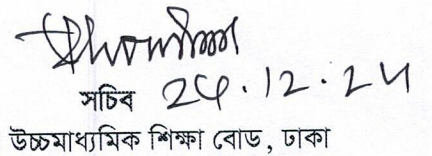 সচিব 24.12.24
উচ্চমাধ্যমিক শিক্ষা বোড, ঢাকা